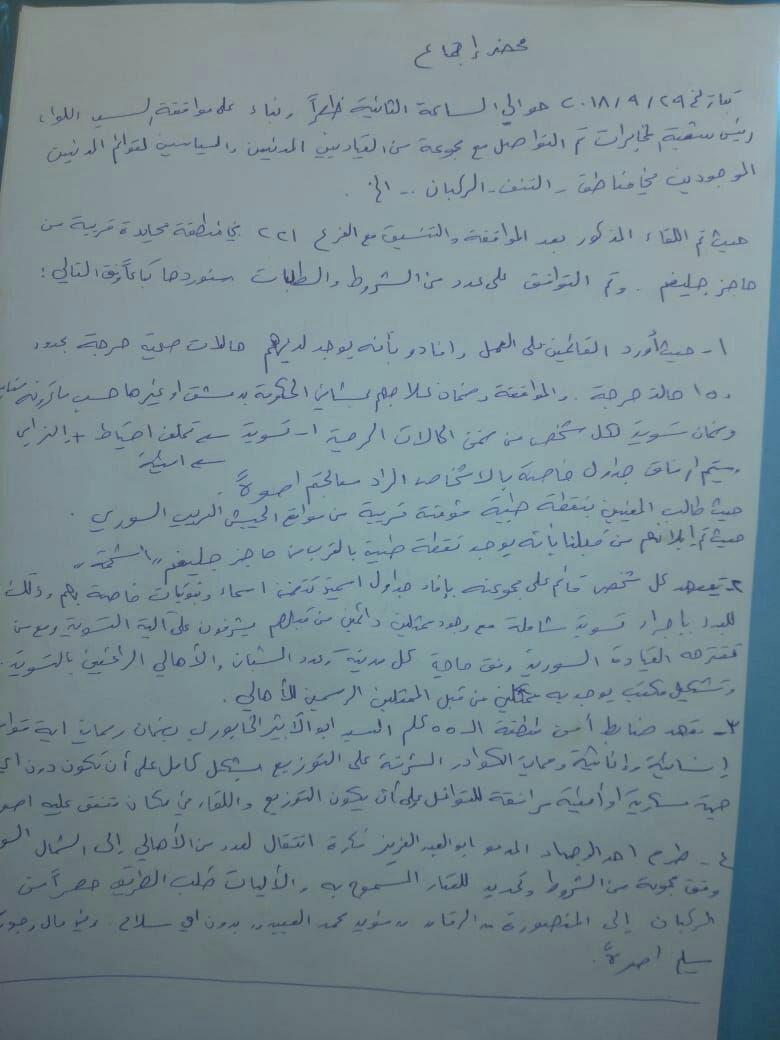 محضر إجتماع
بتاريخ ٢٠١٨/٩/٢٩ حوالي الساعة الثانية ظهراً وبناء على موافقة السيد اللواء
رئيس شعبة المخابرات تم التواصل مع مجموعة من القياديين المدنيين والسياسيين لقوائم المدنيين
الموجودين في مناطق - التنف - الركبان ... الخ.
حيث تم اللقاء المذكور بعد الموافقة والتنسيق مع الفرع ٢٢١ في منطقة محايدة قريبة من
حاجز جليغم. وتم التوافق على عدد من الشروط والطلبات سنوردها تباعاً وفق التالي:
١- حيث أورد القائمين على العمل وأفادو بأنه يوجد لديهم حالات صحية حرجة بحدود
١٥٠ حالة حرجة. والموافقة وضمان علاجهم بمشافي الحكومة بدمشق او غيرها حسب ماترونه
وضمان تسوية لكل شخص من ضمن الحالات المرضية ١- تسوية تخلف احتياط +
وسيتم إرفاق جداول خاصة بالاشخاص المراد معالجتهم اصولاً
حيث طالب المعنيين بنقطة طبية مؤقتة قريبة من مواقع الجيش العربي السوري.
حيث تم إبلاغهم من قبلنا بأنه يوجد نقطة طبية بالقرب من حاجز جليغم
٢- تعهد كل شخص قائم على مجموعته بإفاد جداول اسمية تتضمن اسماء وثبوتيات خاصة بهم وذلك
للبدء بإجراء تسوية شاملة مع وجود ممثلين دائمين من قبلهم يشرفون على آلية التسوية ومع من
تقترحه القيادة السورية وفق حاجة كل مدينة وعدد الشبان والأهالي الراغبين بالتسوية
وتشكيل مكتب يوجد به ممثلين من قبل الممثلين الرسميين للأهالي.
٣- تعهد ضابط أمن منطقة الـ ٥٥ كلم السيد ابو الأثير الخابوري بضمان وحماية اية قوافل
إنسانية وإغاثية وحماية الكوادر المشرفة على التوزيع بشكل كامل على أن تكون دون اي
جهة عسكرية او أمنية مرافقة للقوافل وعلى أن يكون التوزيع واللقاء في مكان متفق عليه اصولاً
٤- طرح احد الوجهاء المدعو ابو العبد العزيز فكرة انتقال لعدد من الأهالي إلى الشمال
وفق مجموعة من الشروط وتحديد للعتاد المسموح به والأليات طلب الطريق حصراً من
الركبان إلى المنصورة بدون اي سلاح
يسلم اصولاً.